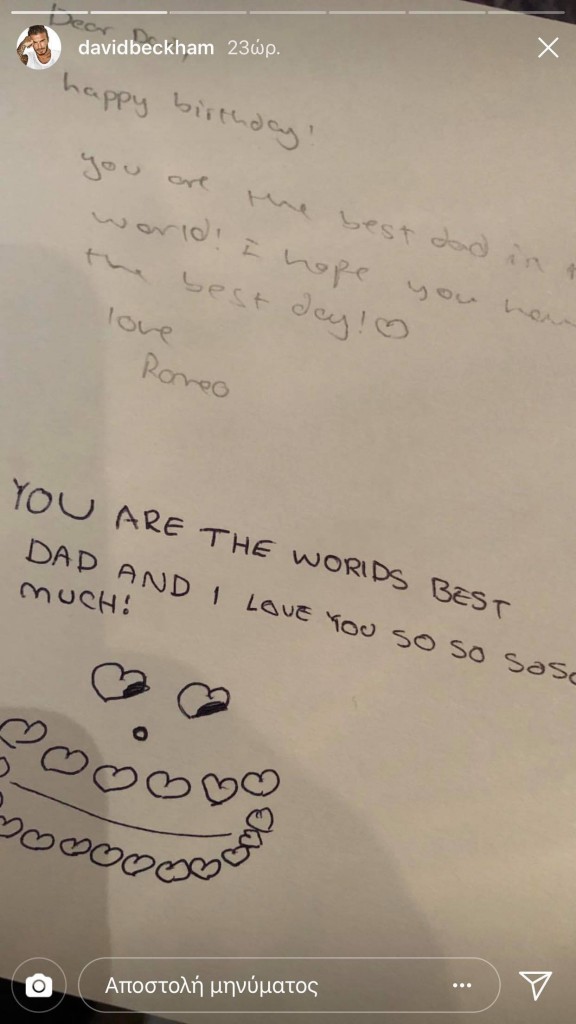 davidbeckham 23ώρ.
Dear Dad,
happy birthday!
you are the best dad in
world! I hope you
the best day!
love
Romeo
YOU ARE THE WORlDS BEST
DAD AND I LOVE YOU SO SO SOSO
MUCH!
Αποστολή μηνύματος